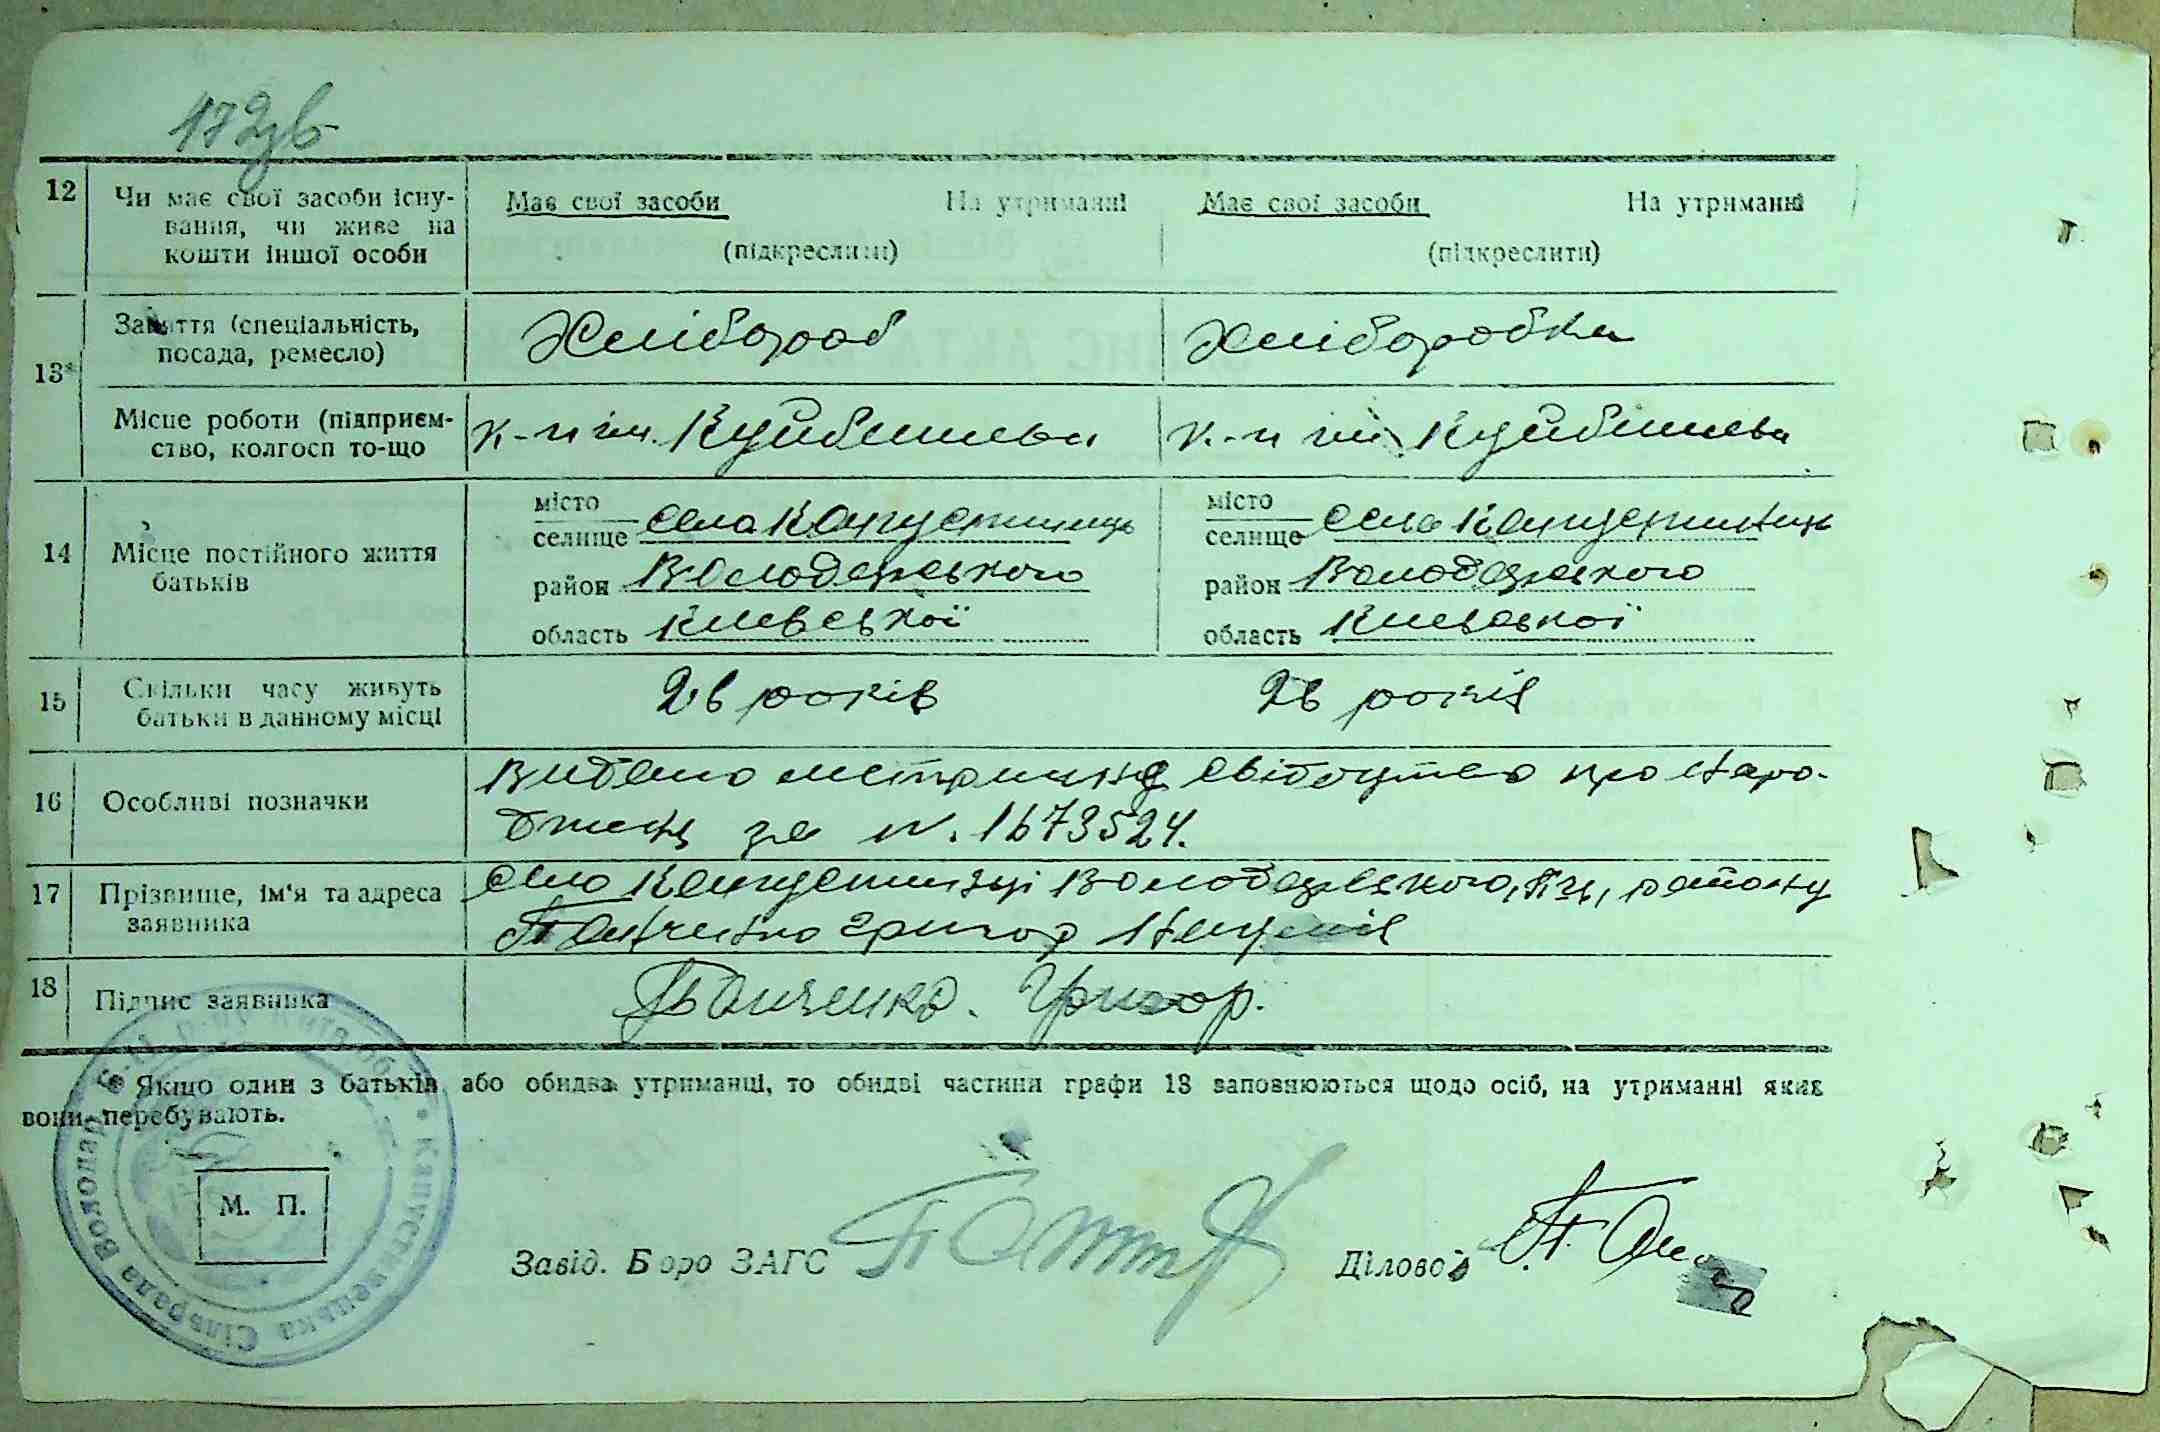 172зв
12 Чи має свої засоби існу- Має свої засоби На утриманні Має свої засоби На утриманні
вання, чи живе на
кошти іншої особи (підкреслити) (підкреслити)
13* Заняття (спеціальність, Хлібороб Хліборобка
посада, ремесло)
Місце роботи (підприєм- к-п ім. Куйбишева к-п ім. Куйбишева
ство, колгосп то-що
14 Місце постійного життя місто місто
батьків селище села Капустинець селище села Капустинець
район Володарського район Володарського
область Києвської область Києвської
15 Скільки часу живуть 26 років 26 років
батьки в данному місці
16 Особливі позначки Видано метричне свідоцтво про наро-
дження за N. 1673524.
17 Прізвище, ім'я та адреса село Капустинці Володарського, району
заявника Панченко Григор
18 Підпис заявника Панченко. Григор.
* Якщо один з батьків або обидва утриманці, то обидві частини графи 13 заповнюються щодо осіб, на утриманні яких
вони перебувають.
М. П.
Завід. Бюро ЗАГС Діловод
Капустинецька Сільрада Володар